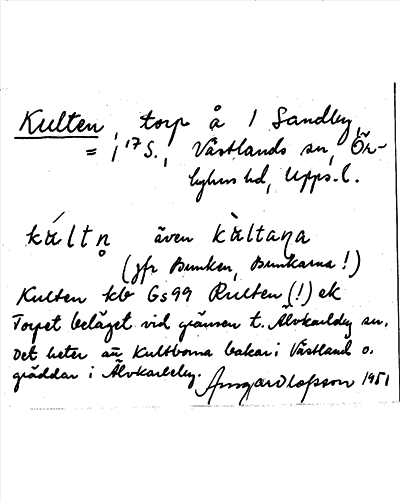 Kulten, torp å 1 Sandby
= 17 S., Västlands sn, Ör-
byhus hd, Upps. l.
kȧ́ltn̥ även kȧ̀ltaṇa
(jfr Bunken, Bunkarna!)
Kulten kb Gs99 Rulten (!) ek
Torpet beläget vid gränsen t. Älvkarleby sn.
Det heter att Kultborna bakar i Västland o.
gräddar i Älvkarleby.
Olofsson 1951